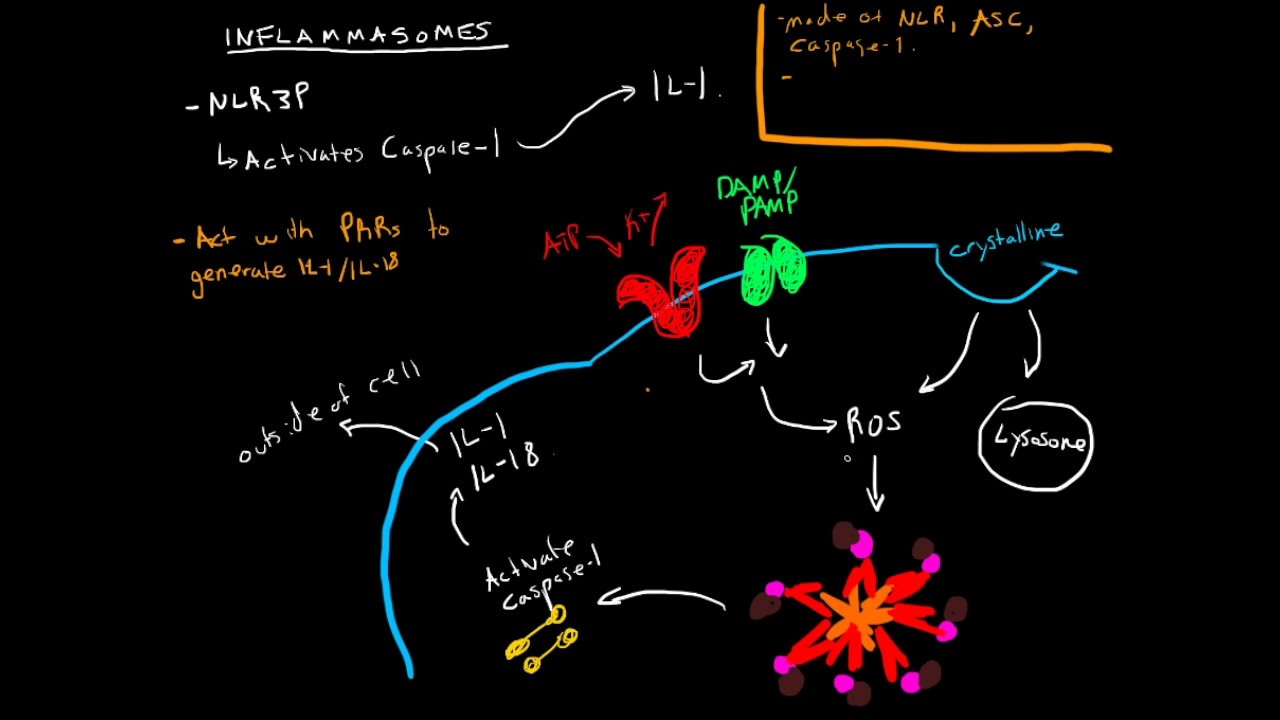 INFLAMMASOMES
- NLR3P
↳ Activates Caspase-1
IL-1.
- made of NLR, ASC,
Caspase-1.
-
- Act with PRRs to
generate IL-1/IL-18
ATP
K+
DAMP/
PAMP
crystalline
outside of cell
IL-1
IL-18
ROS
Lysosome
Activate
Caspase-1